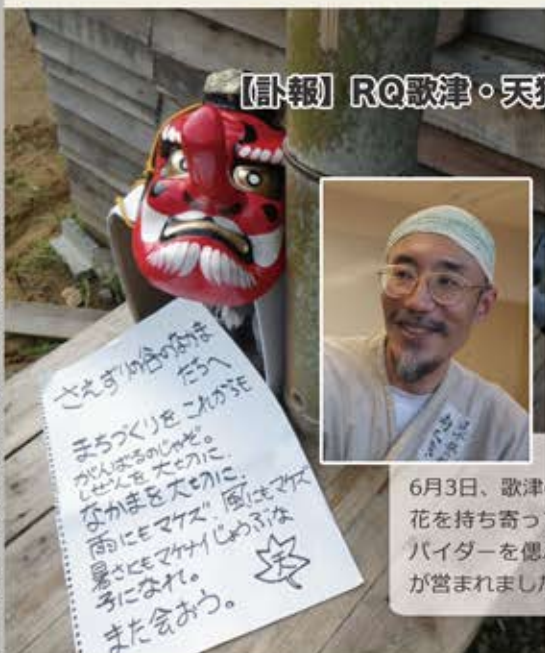 【訃報】RQ歌津・天
さえずりの谷のなかま
たちへ
まちづくりを これからも
がんばるのじゃぞ。
しぜんを大切に、
なかまを大切に、
雨にもマケズ 風にもマケズ
暑さにもマケナイじょうぶな
子になれ。
天
また会おう。
6月3日、歌津
花を持ち寄っ
パイダーを偲
が営まれました